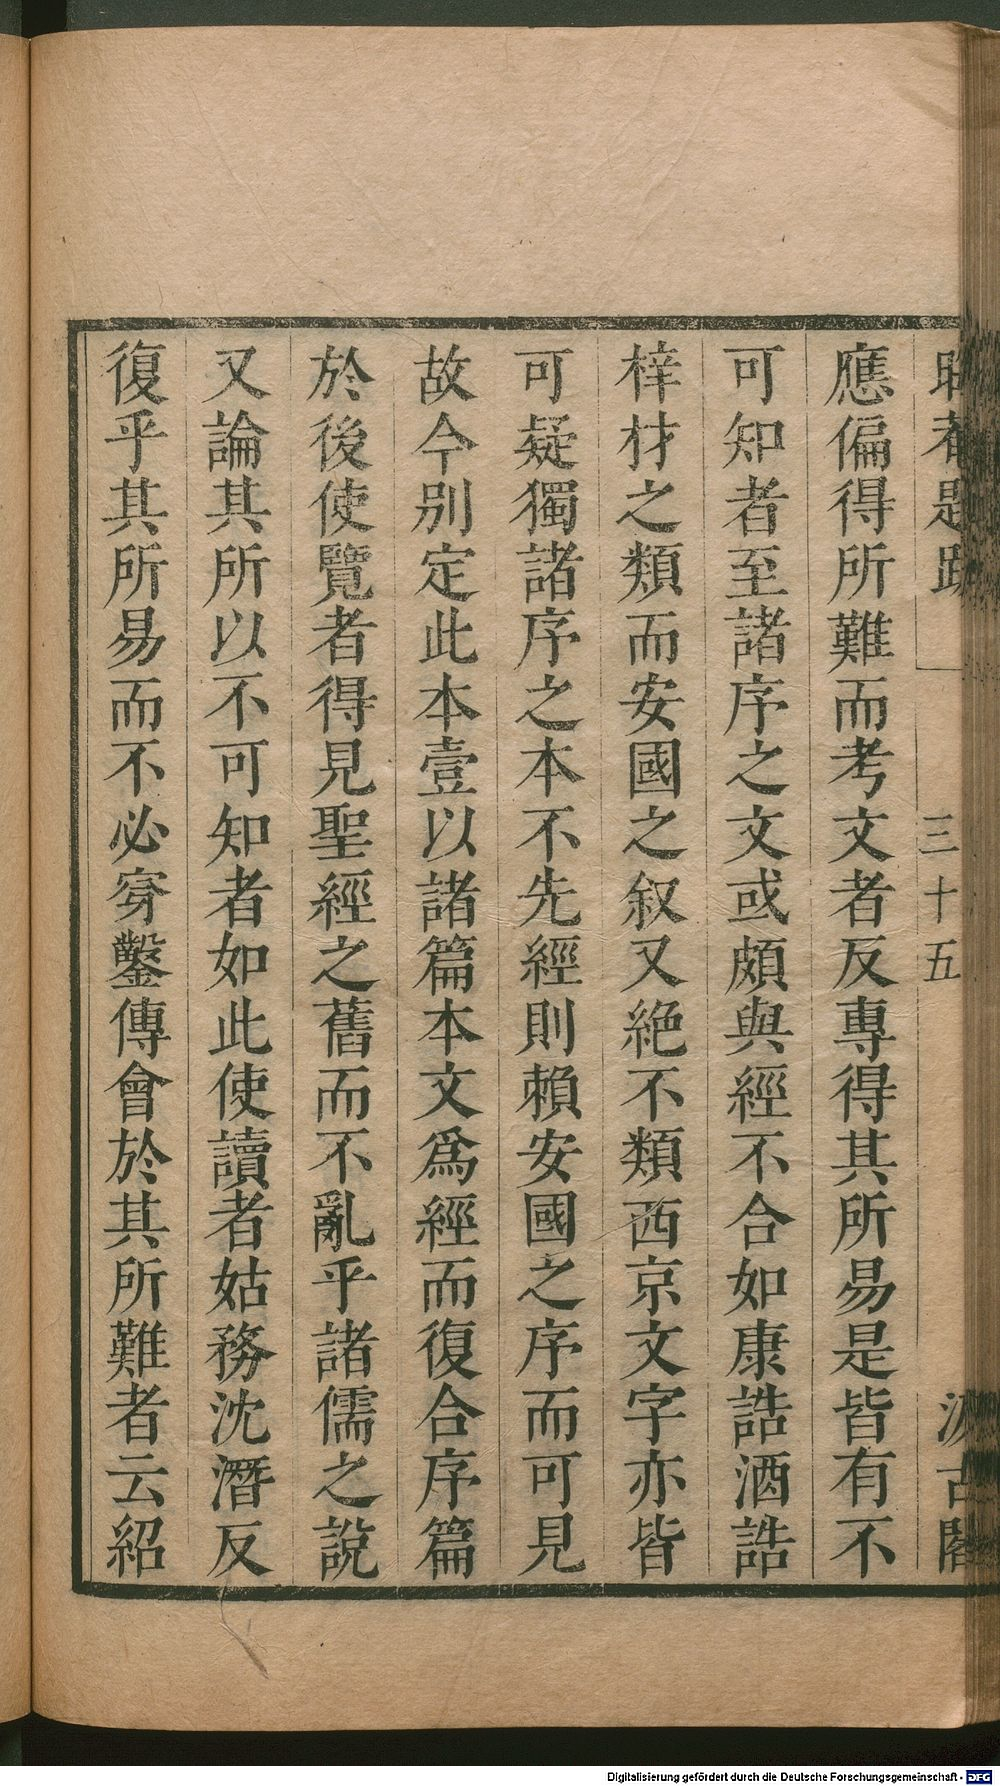 晦菴題跋
三十五
汲古閣
應偏得所難而考文者反專得其所易是皆有不
可知者至諸序之文或頗與經不合如康誥酒誥
梓材之類而安國之叙又絶不類西京文字亦皆
可疑獨諸序之本不先經則賴安國之序而可見
故今别定此本壹以諸篇本文爲經而復合序篇
於後使覽者得見聖經之舊而不亂乎諸儒之說
又論其所以不可知者如此使讀者姑務沈潛反
復乎其所易而不必穿鑿傳會於其所難者云紹
Digitalisierung gefördert durch die Deutsche Forschungsgemeinschaft - DFG